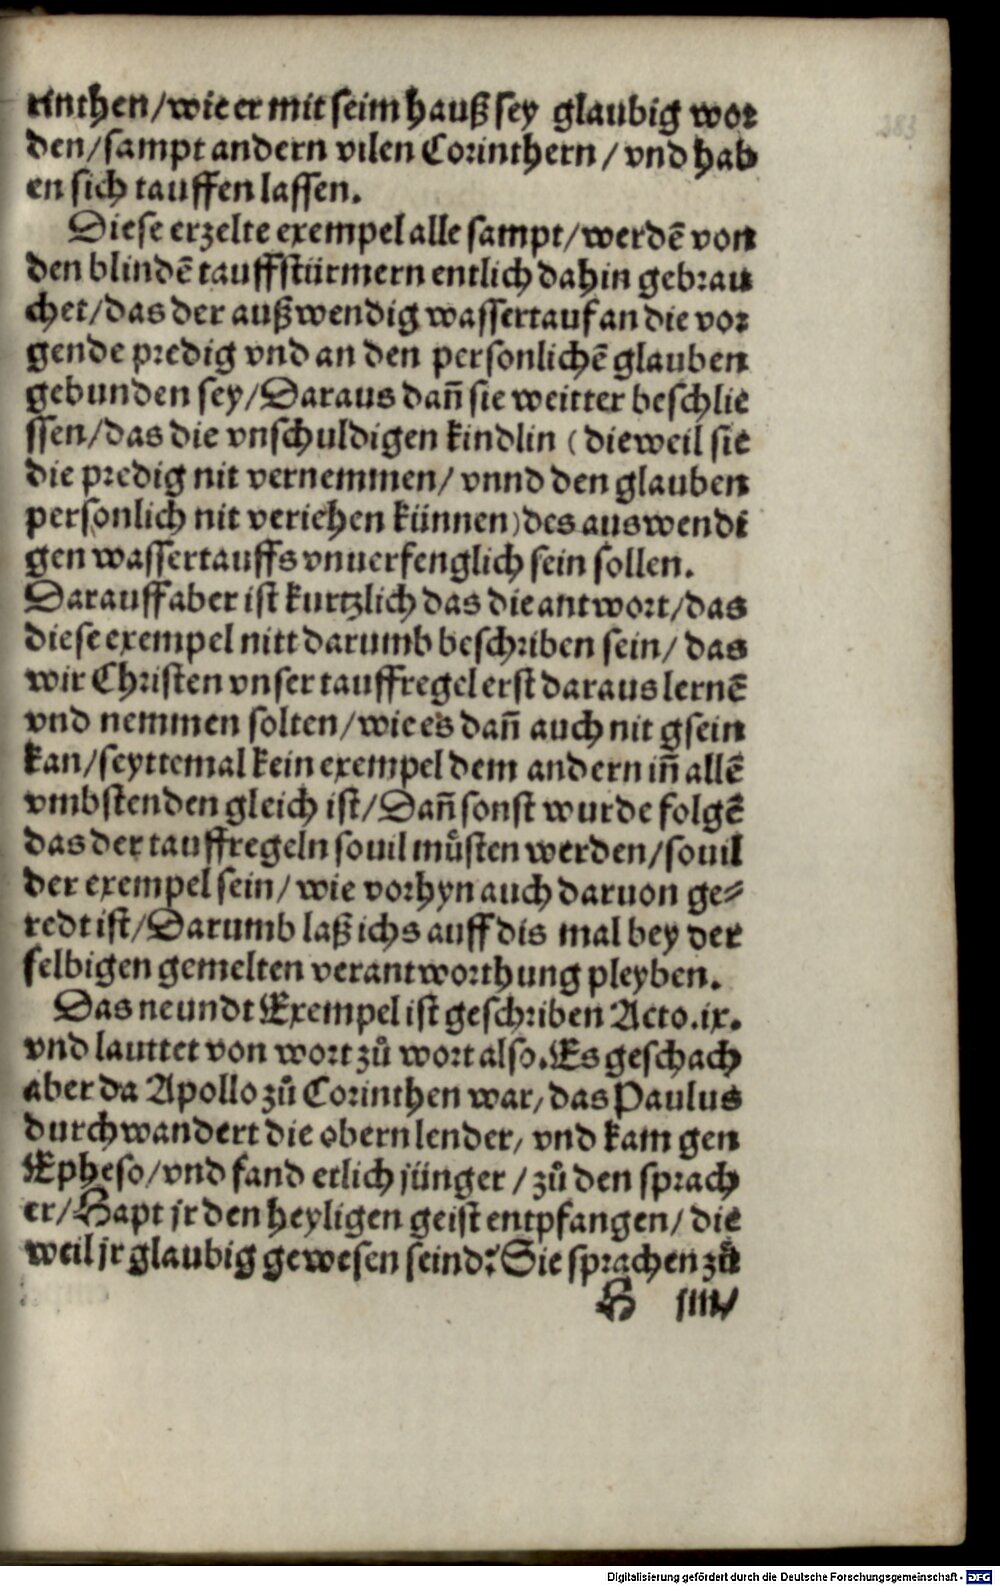 rinthen/wie er mit seim hauß sey glaubig wor
den/sampt andern vilen Corinthern/vnd hab
en sich tauffen lassen.
Diese erzelte exempel alle sampt/werdē von
den blindē tauffstürmern entlich dahin gebrau
chet/das der außwendig wassertauf an die vor
gende predig vnd an den personlichē glauben
gebunden sey/Daraus dan̄ sie weitter beschlie
ssen/das die vnschuldigen kindlin (dieweil sie
die predig nit vernemmen/vnnd den glauben
personlich nit veriehen künnen)des auswendi
gen wassertauffs vnuerfenglich sein sollen.
Darauff aber ist kurtzlich das die antwort/das
diese exempel nitt darumb beschriben sein/das
wir Christen vnser tauffregel erst daraus lernē
vnd nemmen solten/wie es dan̄ auch nit gsein
kan/seyttemal kein exempel dem andern in̄ allē
vmbstenden gleich ist/Dan̄ sonst wurde folgē
das der tauffregeln souil můsten werden/souil
der exempel sein/wie vorhyn auch daruon ge⸗
redt ist/Darumb laß ichs auff dis mal bey der
selbigen gemelten verantworthung pleyben.
Das neundt Exempel ist geschriben Acto.ix.
vnd lauttet von wort zů wort also.Es geschach
aber da Apollo zů Corinthen war/das Paulus
durchwandert die obern lender/vnd kam gen
Epheso/vnd fand etlich jünger/zů den sprach
er/Hapt jr den heyligen geist entpfangen/die
weil jr glaubig gewesen seind? Sie sprachen zů
H iiij
283
Digitalisierung gefördert durch die Deutsche Forschungsgemeinschaft - DFG